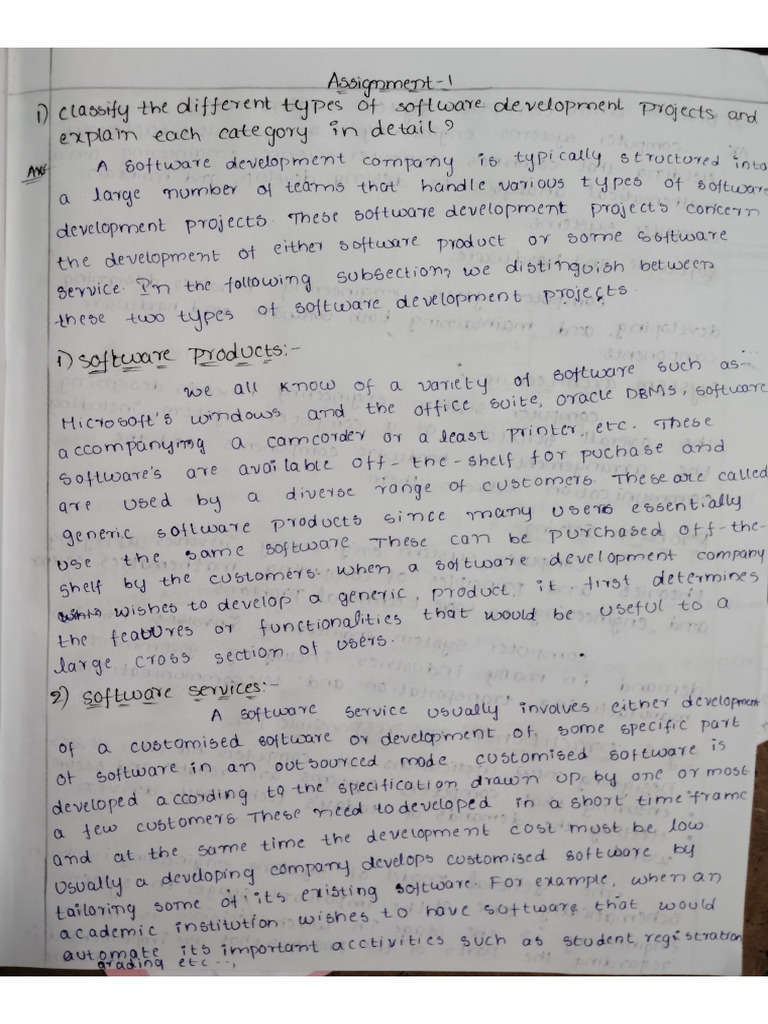 Assignment-1
1) classify the different types of software development projects and
explain each category in detail?
Ans
A software development company is typically structured into
a large number of teams that handle various types of software
development projects. These software development project's concern
the development of either software product or some software
service. In the following subsection, we distinguish between
these two types of software development projects.
1) software products:-
we all know of a variety of software such as-
Microsoft's windows and the office suite, oracle DBMs, software
accompanying a camcorder or a least printer, etc. These
software's are available off-the-shelf for puchase and
are used by a diverse range of customers. These are called
generic software products since many users essentially
use the same software These can be purchased off-the-
shelf by the customers. when a software development company
wishes to develop a generic product, it first determines
the features or functionalities that would be useful to a
large cross section of users.
2) software services:-
A software service usually involves either development
of a customised software or development of some specific part
of software in an outsourced mode customised software is
developed according to the specification drawn up by one or most
a few customers These need to developed in a short time frame
and at the same time the development cost must be low
usually a developing company develops customised software by
tailoring some of its existing software. For example, when an
academic institution wishes to have software that would
automate its important acctivities such as student, registration
grading etc..,